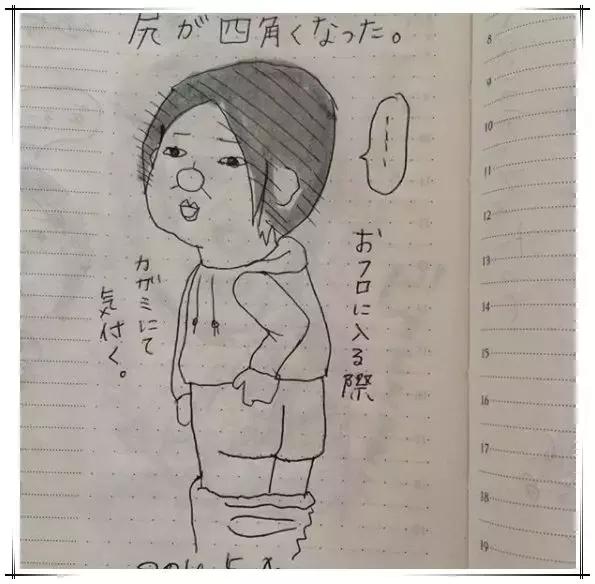 尻が四角くなった。
おフロに入る際
カガミにて
気付く。
8
9
10
11
12
13
14
15
16
17
18
19